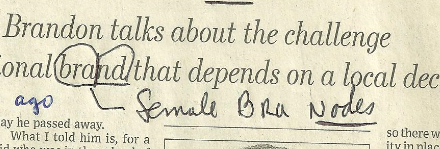 Brandon talks about the challenge
onal brand that depends on a local dec
ago
Female BRA Nodes
ay he passed away.
What I told him is, for a
so there w
ity in plac